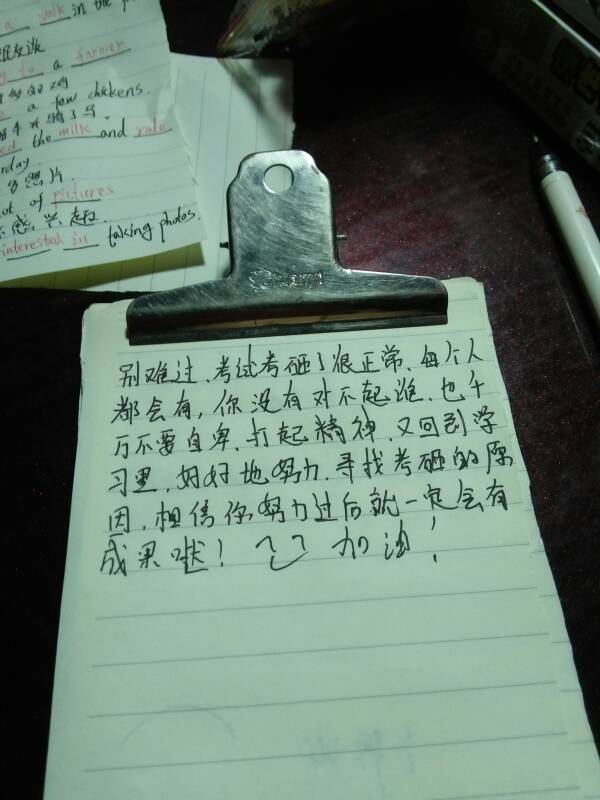 a walk in the p
to a farmer
a few chickens.
the milk and
rday.
ot of pictures
感兴趣
interested in taking photos.
别难过、考试考砸了很正常、每个人
都会有,你没有对不起谁.也千
万不要自卑、打起精神、又回到学
习里、好好地努力.寻找考砸的原
因,相信你努力过后就一定会有
成果哒! 加油!